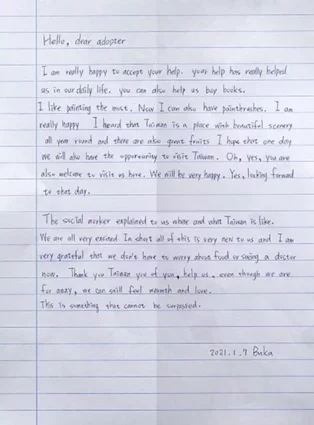 Hello, dear adopter
I am really happy to accept your help. your help has really helped
us in our daily life. you can also help us buy books.
I like painting the most. Now I can also have paintbrashes. I am
really happy I heard that Taiwan is a place with beautiful scenery
all year round and there are also great fruits I hope that one day
we will also have the opportunity to visit Taiwan. Oh, yes, you are
also welcome to visit us here. We will be very happy. Yes, looking forward
to that day.
The social worker explained to us where and what Taiwan is like.
We are all very excited In short all of this is very new to us and I am
very grateful that we don't have to worry about food or seeing a doctor
now. Thank you Taiwan you of you, help us, even though we are
far away, we can still feel warmth and love.
This is something that cannot be surpassed.
2021.1.7 Buka